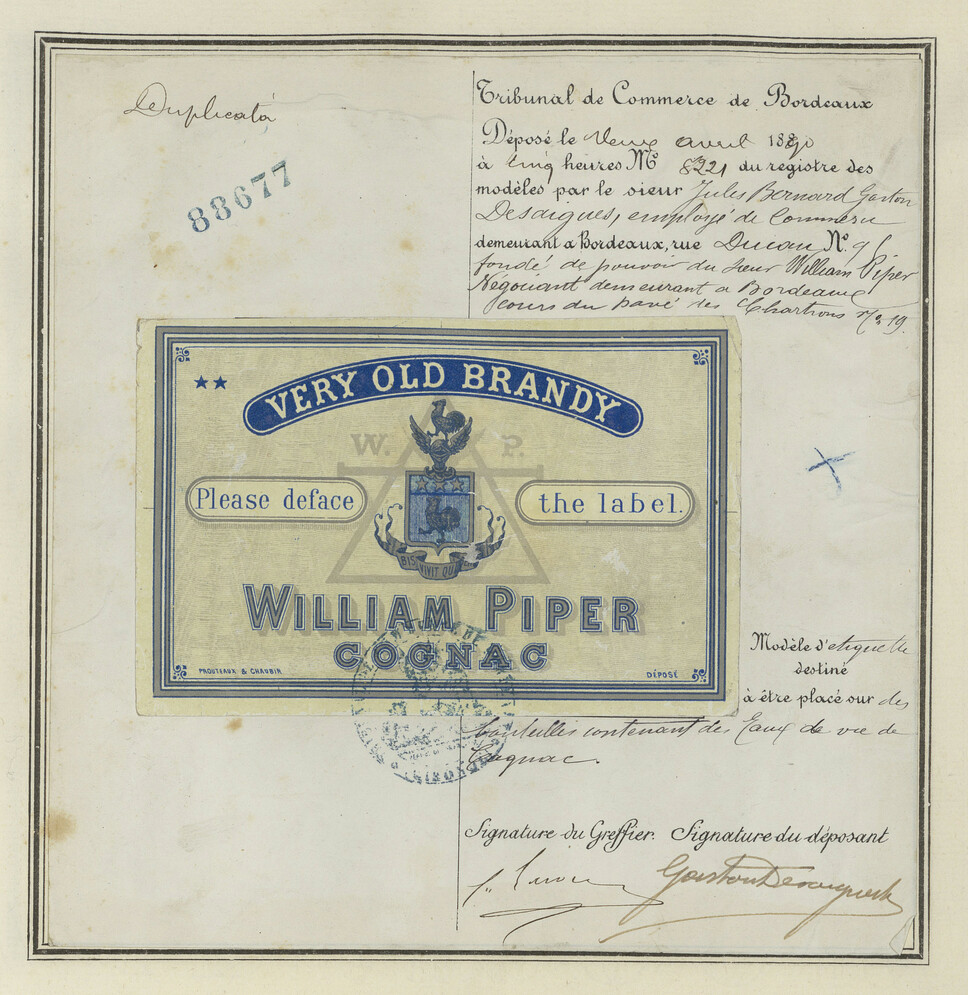 Duplicata
88677
Tribunal de Commerce de Bordeaux
Déposé le deux avril 1890
à cinq heures Nº 8321 du registre des
modèles par le sieur Jules Bernard Gaston
employé de Commerce
demeurant a Bordeaux, rue Nº. 9
fondé de pouvoir du sieur William Piper
Négociant demeurant a Bordeaux
cours du pavé des Chartrons nº 19.
★★
VERY OLD BRANDY
W. P.
Please deface the label.
BIS VIVIT QUI
WILLIAM PIPER
COGNAC
PROUTEAUX & CHAUBIN
DÉPOSÉ
Modèle d'etiquette
destiné
à être placé sur des
bouteilles contenant des Eaux de vie de
Cognac.
Signature du Greffier. Signature du déposant